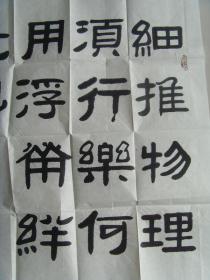 細推物理
湏行樂何
用浮榮絆